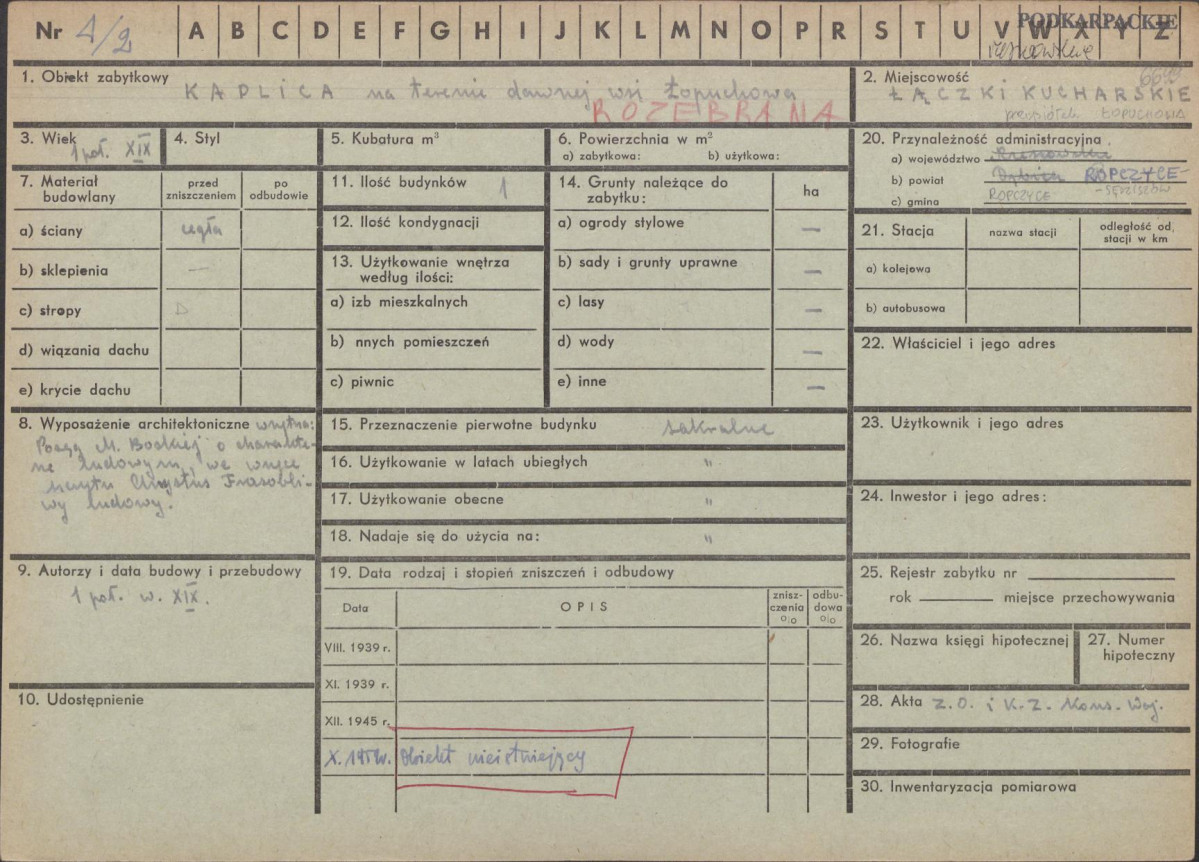 Nr 4/2 A B C D E F G H I J K L M N O P R S T U V W X Y Z PODKARPACKIE
rzeszowskie
1. Obiekt zabytkowy KAPLICA na terenie dawnej wsi Łopuchowa
ROZEBRANA
2. Miejscowość
ŁĄCZKI KUCHARSKIE
przysiółek ŁOPUCHOWA
3. Wiek 1 poł. XIX
4. Styl
5. Kubatura m³
6. Powierzchnia w m²
a) zabytkowa: b) użytkowa:
20. Przynależność administracyjna
a) województwo
b) powiat Dębica ROPCZYCE
- SĘDZISZÓW
c) gmina ROPCZYCE
7. Materiał budowlany
przed zniszczeniem
po odbudowie
a) ściany cegła
b) sklepienia —
c) stropy D
d) wiązania dachu
e) krycie dachu
11. Ilość budynków 1
12. Ilość kondygnacji
13. Użytkowanie wnętrza
według ilości:
a) izb mieszkalnych
b) nnych pomieszczeń
c) piwnic
14. Grunty należące do
zabytku:
ha
a) ogrody stylowe —
b) sady i grunty uprawne —
c) lasy —
d) wody —
e) inne —
21. Stacja
nazwa stacji
odległość od
stacji w km
a) kolejowa
b) autobusowa
22. Właściciel i jego adres
8. Wyposażenie architektoniczne wnętrza:
Posąg M. Boskiej o charakte-
rze ludowym, we wnęce
szczytu Chrystus Frasobli-
wy ludowy.
15. Przeznaczenie pierwotne budynku sakralne
16. Użytkowanie w latach ubiegłych "
17. Użytkowanie obecne "
18. Nadaje się do użycia na: "
23. Użytkownik i jego adres
24. Inwestor i jego adres:
9. Autorzy i data budowy i przebudowy
1 poł. w. XIX.
10. Udostępnienie
19. Data rodzaj i stopień zniszczeń i odbudowy
Data
OPIS
znisz-
czenia
%
odbu-
dowa
%
VIII. 1939 r.
XI. 1939 r.
XII. 1945 r.
Obiekt nieistniejący
25. Rejestr zabytku nr
rok miejsce przechowywania
26. Nazwa księgi hipotecznej
27. Numer
hipoteczny
28. Akta Z.O. i K.Z. Kons. Woj.
29. Fotografie
30. Inwentaryzacja pomiarowa